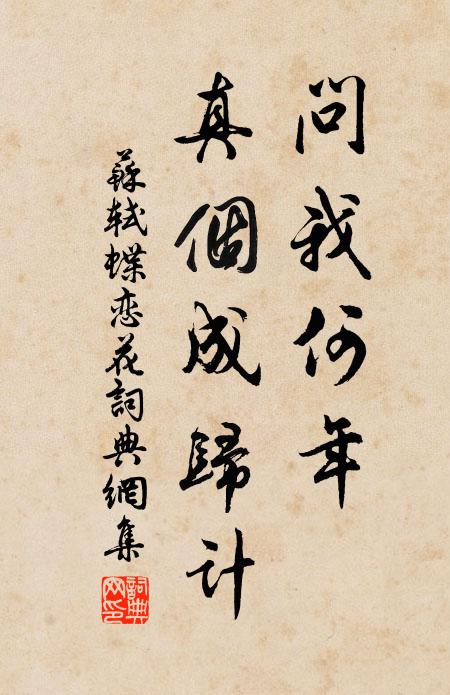 問我何年
真個成歸计
蘇軾蝶恋花詞典網集
詞典網印